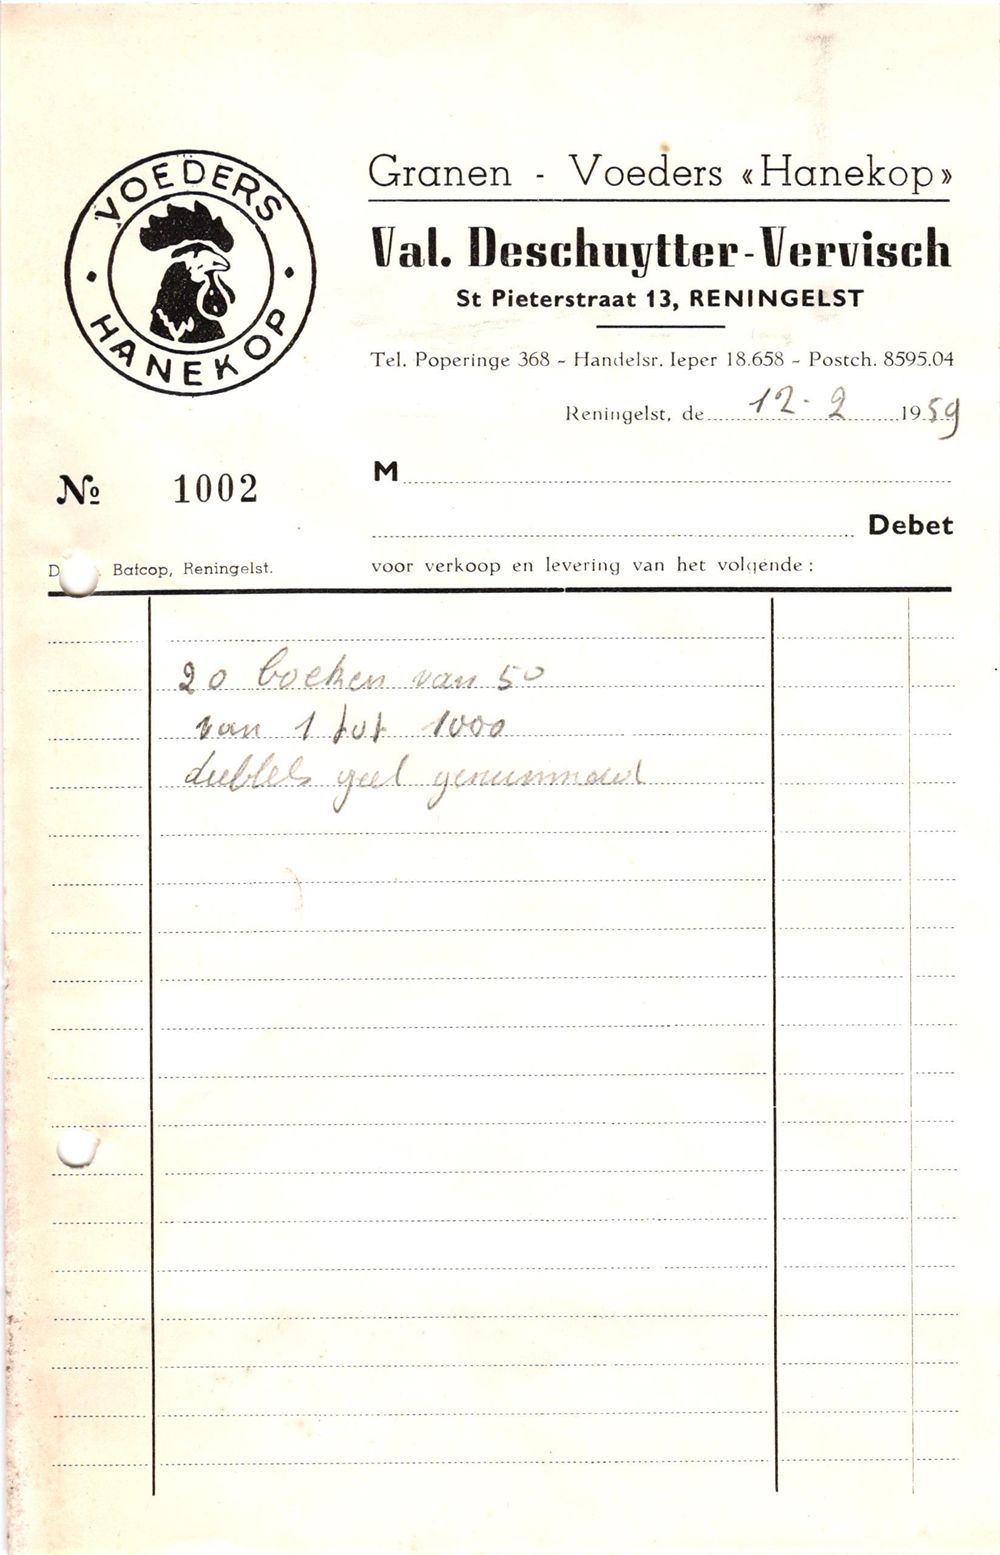 VOEDERS
HANEKOP
Granen - Voeders «Hanekop»
Val. Deschuytter-Vervisch
St Pieterstraat 13, RENINGELST
Tel. Poperinge 368 - Handelsr. Ieper 18.658 - Postch. 8595.04
Reningelst, de 12-2 1959
M
№ 1002
Debet
Batcop, Reningelst.
voor verkoop en levering van het volgende :
20 boeken van 50
van 1 tot 1000
dubbels geel genummerd